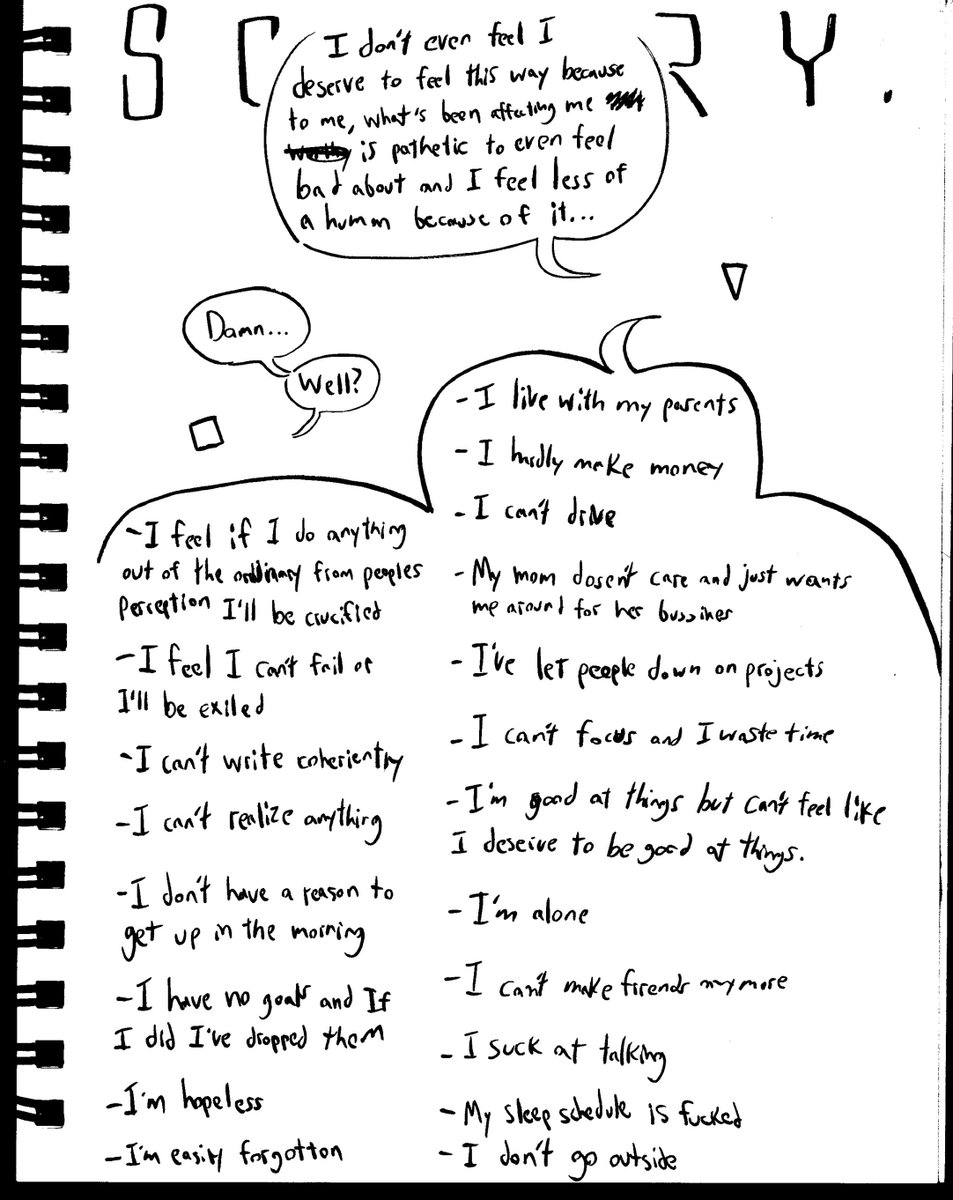 S C R Y .
I don't even feel I
deserve to feel this way because
to me, what's been affecting me
is pathetic to even feel
bad about and I feel less of
a human because of it...
Damn...
Well?
- I feel if I do anything
out of the ordinary from peoples
perception I'll be crucified
- I feel I can't fail or
I'll be exiled
- I can't write coheriently
- I can't realize anything
- I don't have a reason to
get up in the morning
- I have no goals and If
I did I've dropped them
- I'm hopeless
- I'm easily forgotton
- I live with my parents
- I hardly make money
- I can't drive
- My mom dosen't care and just wants
me around for her bussines
- I've let people down on projects
- I can't focus and I waste time
- I'm good at things but can't feel like
I deserve to be good at things.
- I'm alone
- I can't make firends anymore
- I suck at talking
- My sleep schedule is fucked
- I don't go outside